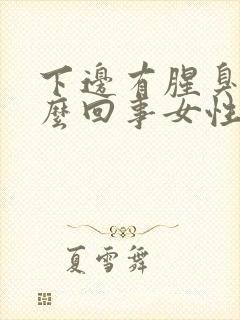 下邊有腥臭
麼回事女性
夏雪舞